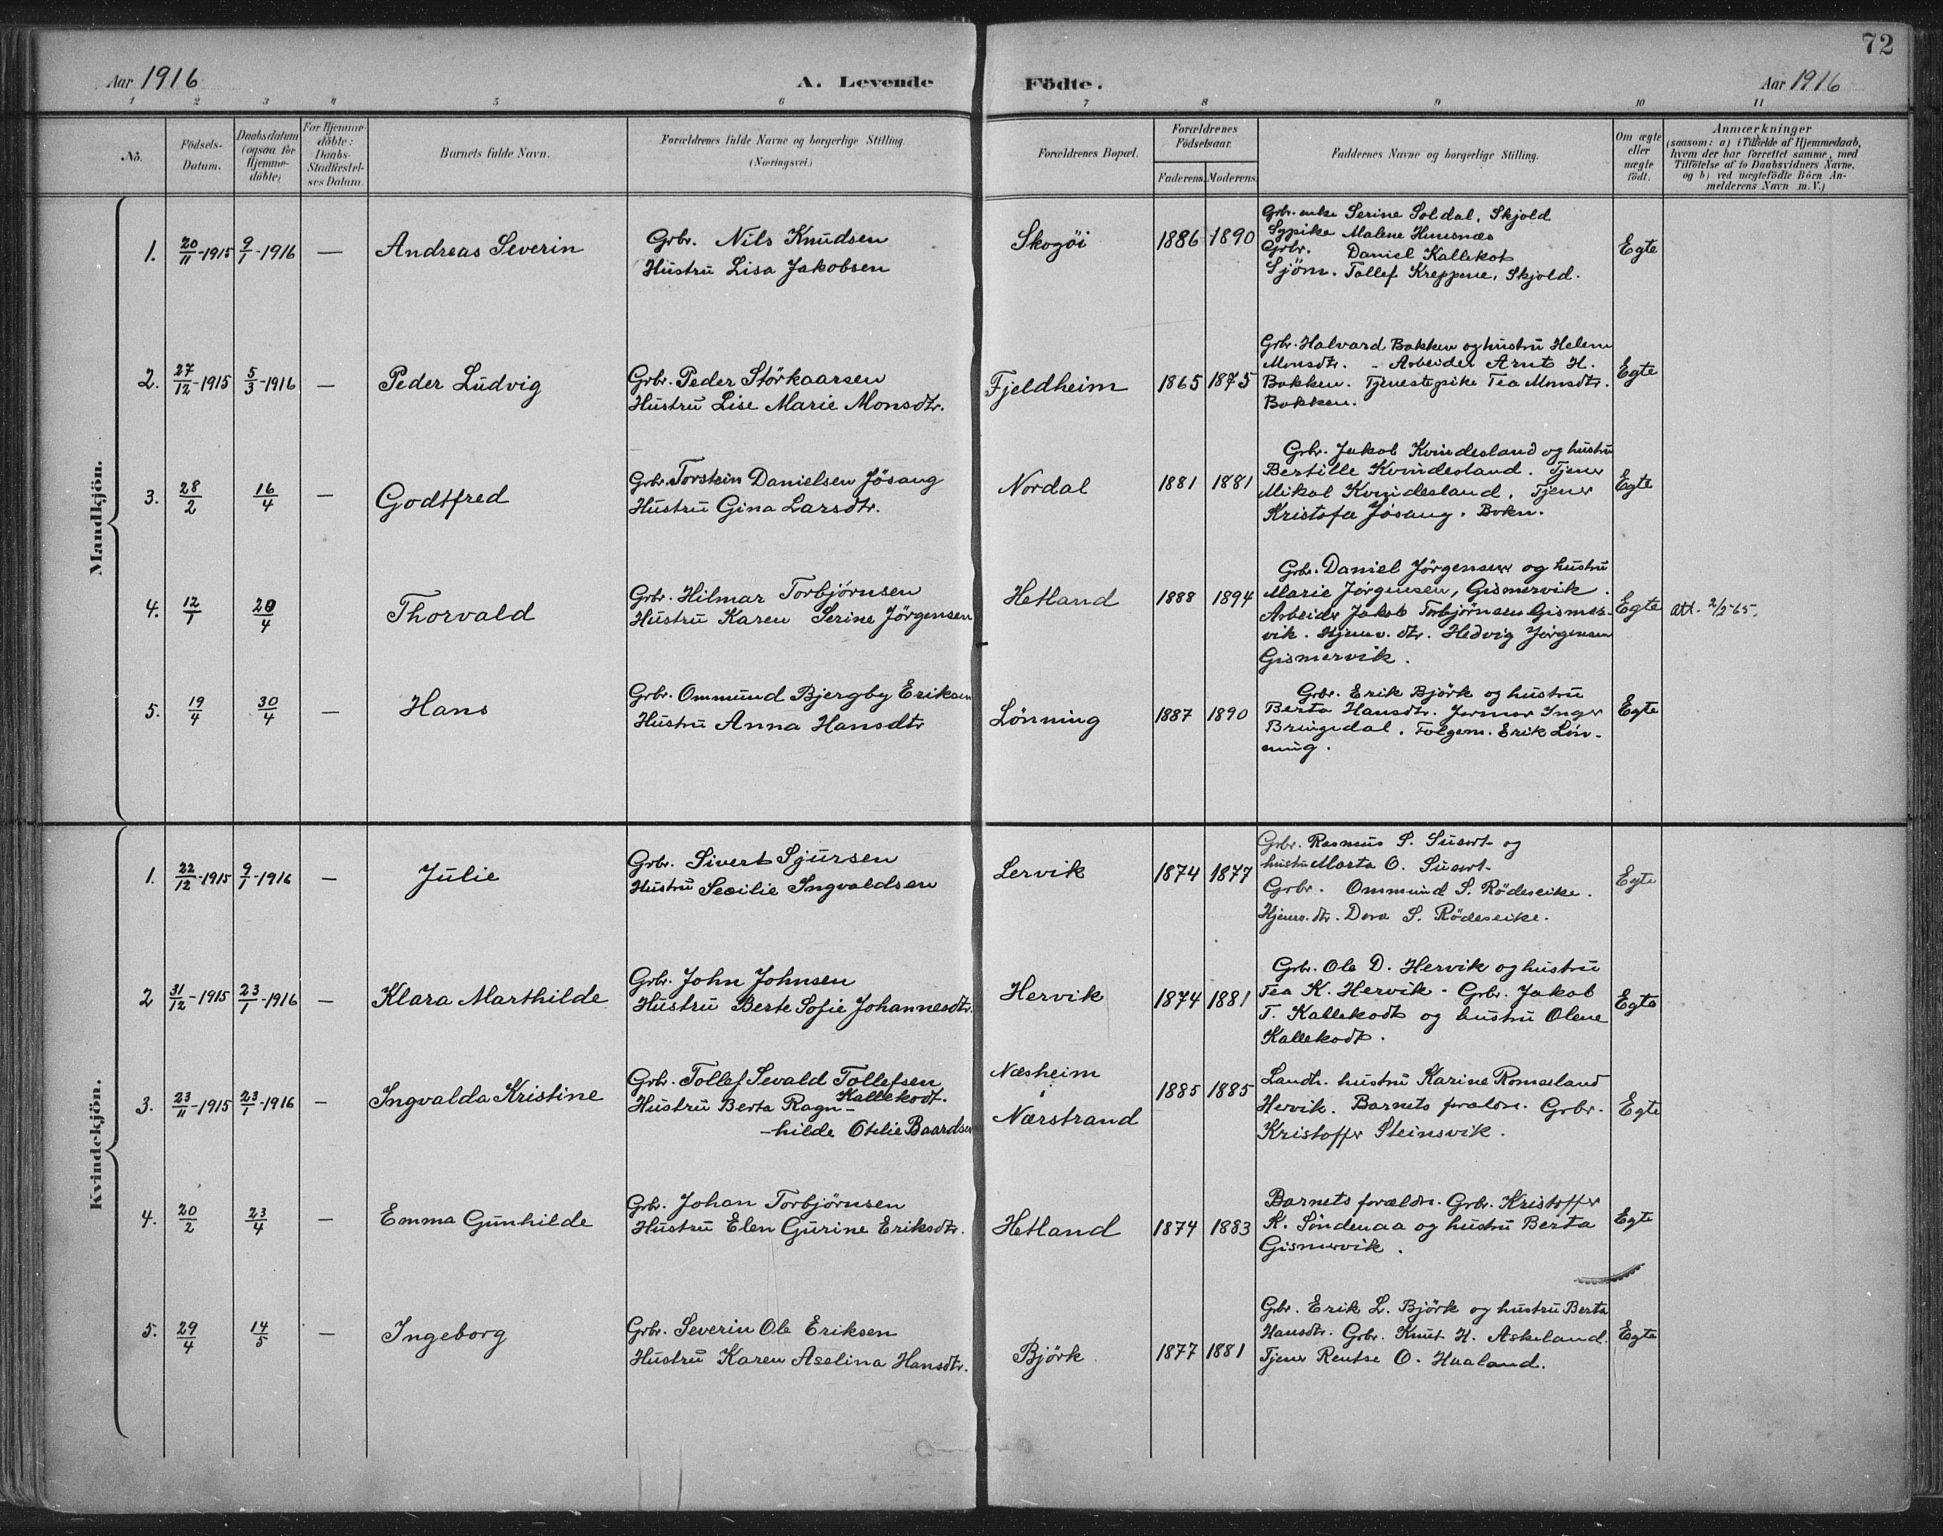 72
Aar 1916 A. Levende Födte. Aar 1916
1 2 3 4 5 6 7 8 9 10 11
No.
Födsels-Datum.
Daabsdatum (ogsaa for Hjemme-döbte)
For Hjemme-döbte: Daabs-Stadfæstel-ses Datum.
Barnets fulde Navn.
Forældrenes fulde Navne og borgerlige Stilling (Næringsvei.)
Forældrenes Bopæl.
Forældrenes Födselsaar.
Faderens. Moderens.
Faddernes Navne og borgerlige Stilling.
Om ægte eller uægte födt.
Anmærkninger
(saasom: a) i Tilfælde af Hjemmedaab,
hvem der har forrettet samme, med
Tilföielse af to Daabsvidners Navne,
og b) ved uægtefödte Börn An-
melderens Navn m. V.)
Mandkjön.
1. 20/11-1915 9/1-1916 — Andreas Severin
Grbr. Nils Knudsen
Hustru Lisa Jakobsen
Skogöi 1886 1890
Grbr. enke Serine Soldal, Skjold
Sypike Malene
Grbr. Daniel Kallekot
Sjöm. Tollef Kreppene, Skjold.
Egte
2. 27/12-1915 5/3-1916 — Peder Ludvig
Grbr. Peder Störkaarsen
Hustru Lise Marie Monsdtr.
Fjeldheim 1865 1875
Grbr. Halvard Bakken og hustru Helene
Monsdtr. - Arbeider Arnt H.
Bakken. Tjenestepike Tea Monsdtr.
Bakken.
Egte
3. 28/2 16/4 — Godtfred
Grbr. Torstein Danielsen Jösang
Hustru Gina Larsdtr.
Nordal 1881 1881
Grbr. Jakob Kvindesland og hustru
Bertille Kvindesland. Tjener
Mikal Kvindesland. Tjener
Kristofer Jösang. Bokn.
Egte
4. 12/1 20/4 — Thorvald
Grbr. Hilmar Torbjörnsen
Hustru Karen Serine Jörgensen
Hetland 1888 1894
Grbr. Daniel Jörgensen og hustru
Marie Jörgensen, Gismervik.
Arbeider Jakob Torbjörnsen Gismer-
vik. Hjemv. dtr. Hedvig Jörgensen
Gismervik.
Egte att. 2/5-65.
5. 19/4 30/4 — Hans
Grbr. Ommund Bjergby Eriksen
Hustru Anna Hansdtr
Lönning 1887 1890
Grbr. Erik Björk og hustru
Berta Hansdtr. Jormor Inger
Bringedal. Folgem. Erik Lön-
ning.
Egte
Kvindekjön.
1. 22/12-1915 9/1-1916 — Julie
Grbr. Sivert Sjursen
Hustru Sesilie Ingvaldsen
Lervik 1874 1877
Grbr. Rasmus S. Susort og
hustru Marta O. Susort.
Grbr. Ommund S. Rödeseike.
Hjemv. dtr. Dora S. Rödeseike.
Egte
2 31/12-1915 23/1-1916 — Klara Marthilde
Grbr. John Johnsen
Hustru Berte Sofie Johannesdtr.
Hervik 1874 1881
Grbr. Ole D. Hervik og hustru
Tea K. Hervik. Grbr. Jakob
T. Kallekodt og hustru Olene
Kallekodt.
Egte
3. 23/11-1915 23/1-1916 — Ingvalda Kristine
Grbr. Tollef Sevald Tollefsen
Kallekodt.
Hustru Berta Ragn-
-hilde Otelie Baardsen
Næsheim
i
Nærstrand
1885 1885
Landh. hustru Karine Romseland
Hervik. Barnets forældre. Grbr.
Kristoffer Steinsvik.
Egte
4. 20/2 23/4 — Emma Gunhilde
Grbr. Johan Torbjörnsen
Hustru Elen Gurine Eriksdtr.
Hetland 1874 1883
Barnets forældre. Grbr. Kristoffer
K. Söndenaa og hustru Berta
Gismervik.
Egte
5. 29/4 14/5 — Ingeborg
Grbr. Severin Ole Eriksen
Hustru Karen Aselina Hansdtr.
Björk 1877 1881
Grbr. Erik L. Björk og hustru Berta
Hansdtr. Grbr. Knut H. Askeland.
Tjener Rentse O. Haaland.
Egte